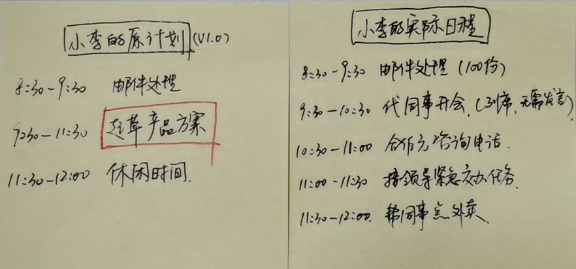 小李的原计划 (V1.0)
8:30-9:30 邮件处理
9:30-11:30 起草产品方案
11:30-12:00 休闲时间.
小李的实际日程
8:30-9:30 邮件处理 (100份)
9:30-10:30 代同事开会.(列席,无需发言)
10:30-11:00 合作方咨询电话.
11:00-11:30 接领导紧急交办任务.
11:30-12:00. 帮同事点外卖.